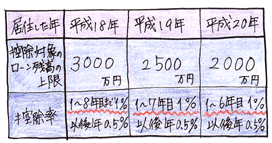 居住した年 平成18年 平成19年 平成20年
控除対象の
ローン残高の
上限
3000
万円
2500
万円
2000
万円
控除率
1~8年目まで1%
以後年0.5%
1~7年目1%
以後年0.5%
1~6年目1%
以後年0.5%